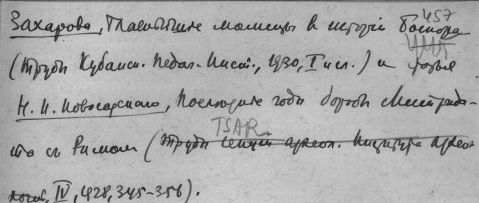 457
Захарова, Главнейшие моменты в истории Боспора
(Труды Кубанск. Педаг. Инст., 1930, I исл.) и
Н. И. Новосадского, Последние годы борьбы Митрида-
та с Римом (Труды секций археол. Института археол
логии, IV, 1928, 345-356).
TSAR